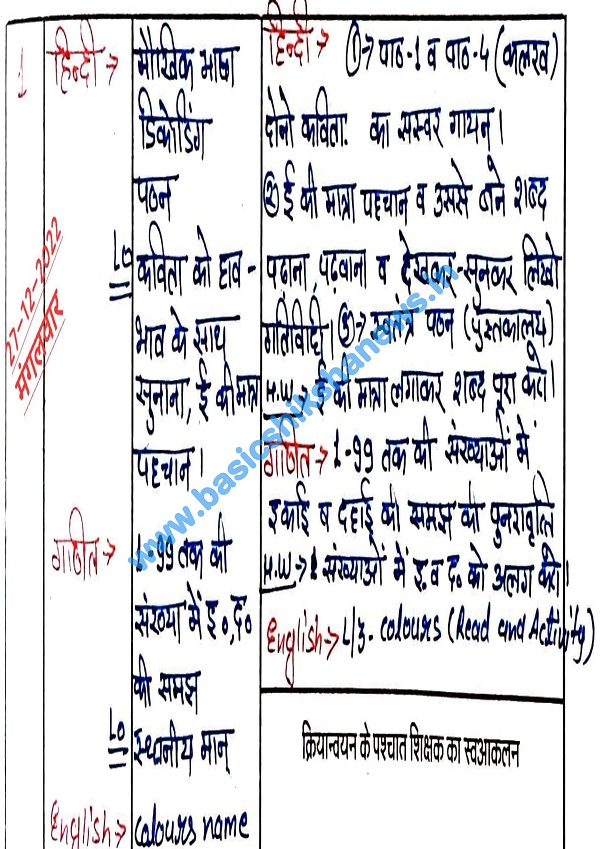 1
27-12-2022
मंगलवार
हिन्दी →
मौखिक भाषा
डिकोडिंग
पठन
LO
कविता को हाव-
भाव के साथ
सुनाना, ई की मात्रा
पहचान।
गणित →
1-99 तक की
संख्या में इ०, द०
की समझ
LO
स्थानीय मान
English →
Colours name
हिन्दी →
① → पाठ-1 व पाठ-4 (कलरव)
दोनो कविता का सस्वर गायन।
② ई की मात्रा पहचान व उससे बने शब्द
पढ़ाना, पढ़वाना व देखकर-सुनकर लिखो
गतिविधी। ③ → स्वतंत्र पठन (पुस्तकालय)
H.W → ई की मात्रा लगाकर शब्द पूरा करो।
गणित → 1-99 तक की संख्याओं में
इकाई व दहाई की समझ की पुनरावृत्ति
H.W → संख्याओं में इ. व द० को अलग करो।
English → L/3- colours (Read and Activity)
क्रियान्वयन के पश्चात शिक्षक का स्वआकलन
www.basicshikshanews.in